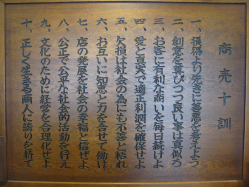 商売十訓
一、損得より先きに善悪を考えよう
二、創意を尊びつつ良い事は真似ろ
三、お客に有利な商いを毎日続けよ
四、愛と真実で適正利潤を確保せよ
五、欠損は社会の為にも不善と悟れ
六、お互いに知恵と力を合せて働け
七、店の発展を社会の幸福と信ぜよ
八、公正で公平な社会的活動を行え
九、文化のために経営を合理化せよ
十、正しく生きる商人に誇りを持て